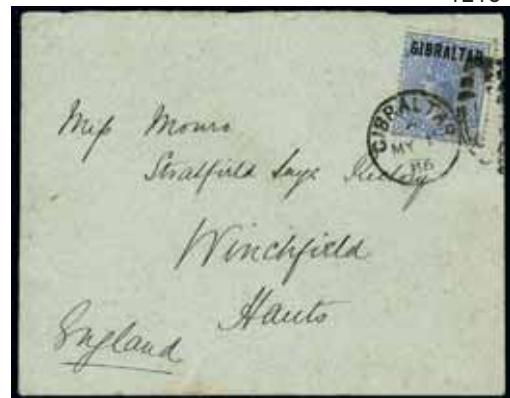 GIBRALTAR
GIBRALTAR
MY
86
Miss Monro
Stratfield Saye Rectory
Winchfield
Hants
England